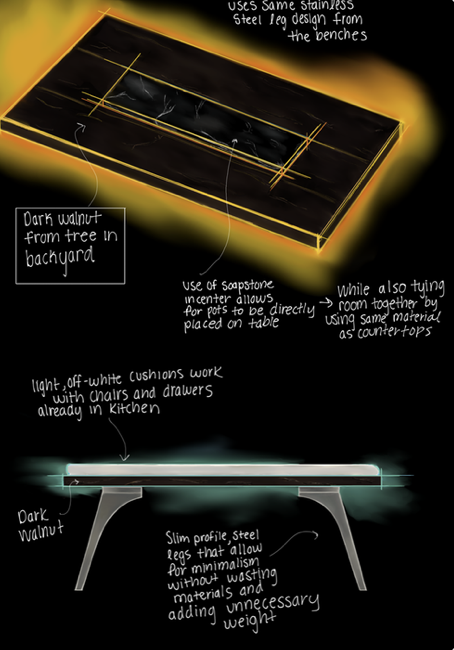 uses same stainless
steel leg design from
the benches
Dark walnut
from tree in
backyard
use of soapstone
in center allows
for pots to be directly
placed on table
While also tying
room together by
using same material
as countertops
light, off-white cushions work
with chairs and drawers
already in kitchen
Dark
walnut
Slim profile, steel
legs that allow
for minimalism
without wasting
materials and
adding unnecessary
weight